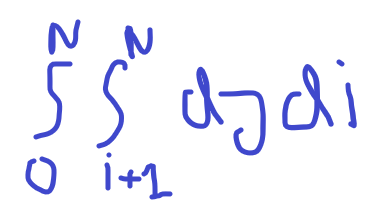 ∫₀ᴺ ∫ᵢ₊₁ᴺ dj di